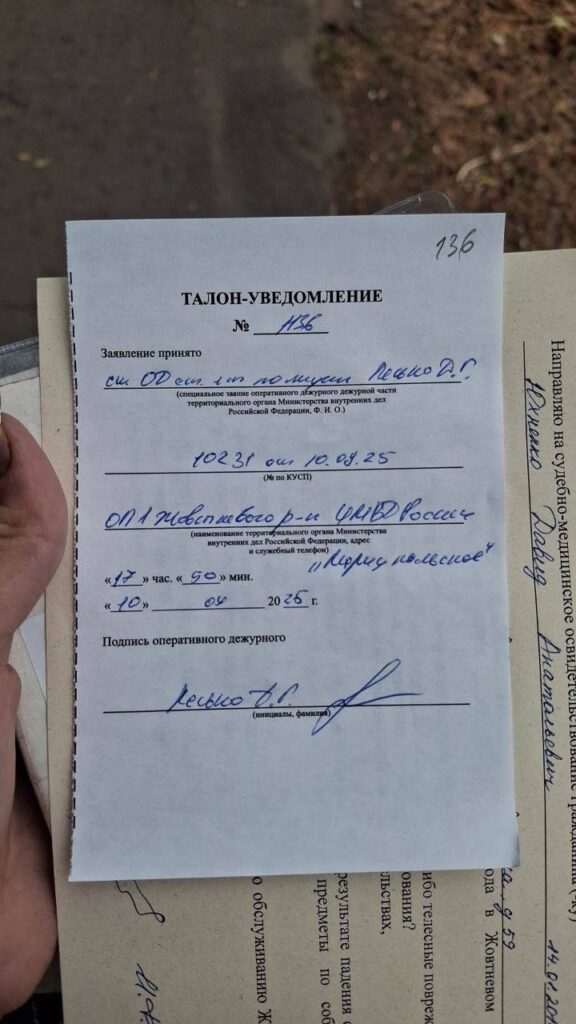 136
ТАЛОН-УВЕДОМЛЕНИЕ
№ 1136
Заявление принято
ст ОД ст. л-т полиции Лесько Д.Г.
(специальное звание оперативного дежурного дежурной части
территориального органа Министерства внутренних дел
Российской Федерации, Ф. И. О.)
10231 от 10.09.25
(№ по КУСП)
ОП 1 Жовтневого р-н УМВД России
(наименование территориального органа Министерства
внутренних дел Российской Федерации, адрес
и служебный телефон)
„Мариупольское"
« 17 » час. « 50 » мин.
« 10 » 09 20 25 г.
Подпись оперативного дежурного
Лесько Д.Г.
(инициалы, фамилия)
Направляю на судебно-медицинское освидетельствование гражданина (-ку)
Давид Анатольевич
14.01.20
д 59
ода в Жовтневом
ибо телесные повреж
ования?
льствах,
результате падения с
предметы по соб
о обслуживанию Ж